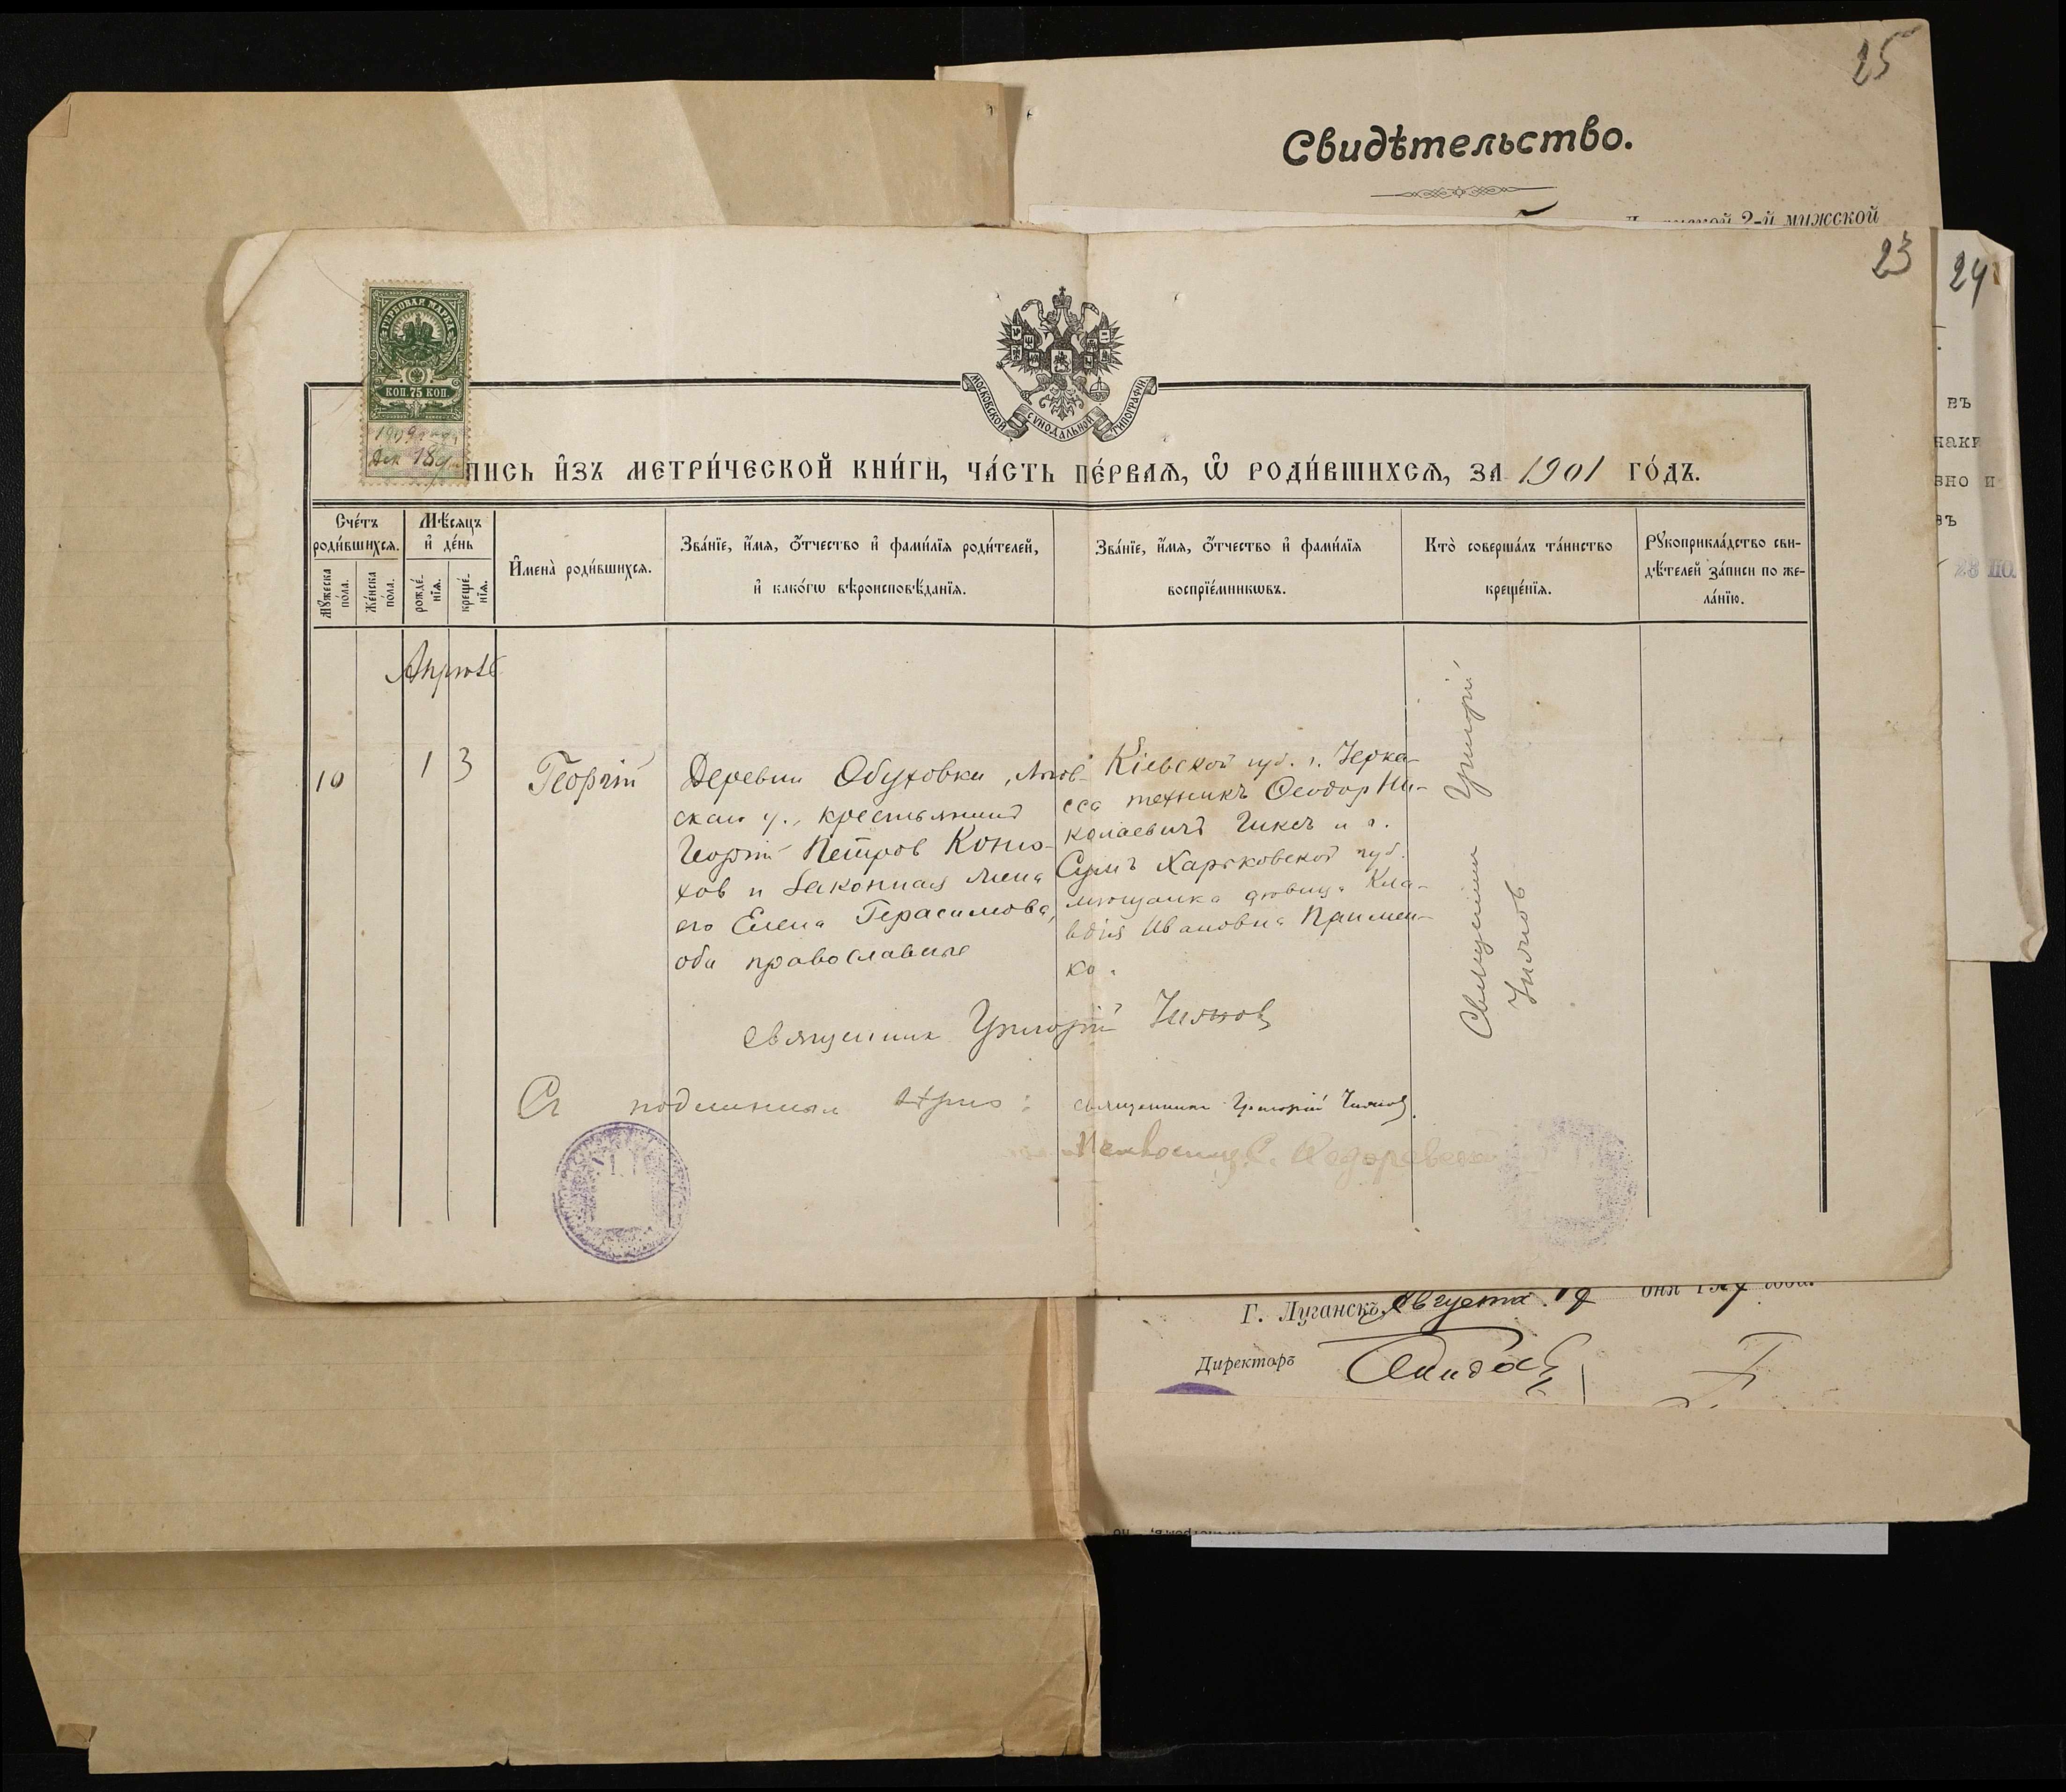 25
Свидѣтельство.
2-й мужской
23
24
ГЕРБОВАЯ МАРКА
КОП. 75 КОП.
1909 года
Дек 18
МОСКОВСКОЙ СѴНОДАЛЬНОЙ ТИПОГРАФІИ
ПИСЬ И҆ЗЪ МЕТРИ́ЧЕСКОЙ КНИ́ГИ, ЧА́СТЬ ПЕ́РВАѦ, Ѿ РОДИ́ВШИХСѦ, ЗА 1901 ГО́ДЪ.
Сче́тъ роди́вшихсѧ.
Мꙋ́жеска по́ла.
Же́нска по́ла.
Мѣ́сѧцъ и҆ де́нь
рожде́нїѧ.
креще́нїѧ.
И҆мена̀ роди́вшихсѧ.
Зва́нїе, и҆́мѧ, ѻ҆́тчество и҆ фами́лїѧ роди́телей,
и҆ како́гѡ вѣроисповѣ́данїѧ.
Зва́нїе, и҆́мѧ, ѻ҆́тчество и҆ фами́лїѧ
воспрїе́мникѡвъ.
Кто̀ соверша́лъ та́инство
креще́нїѧ.
Рꙋкоприкла́дство сви-
дѣ́телей за́писи по же-
ла́нїю.
Апрѣль
10
1
3
Георгій
Деревни Обуховки, Льгов-
скаго у., крестьянинъ
Георгій Петров Коню-
хов и законная жена
его Елена Герасимова,
оба православные
Кіевской губ. г. Черка-
сса техникъ Ѳеодор Ни-
колаевичъ и г.
Сумъ Харьковской губ.
мѣщанка дѣвица Кла-
вдія Ивановна
ко.
Священник Григорій
Священник Григорій
Съ подлинным вѣрно: Священник Григорій
въ
вно и
въ
Г. Луганскъ, Августа дня года.
Директоръ